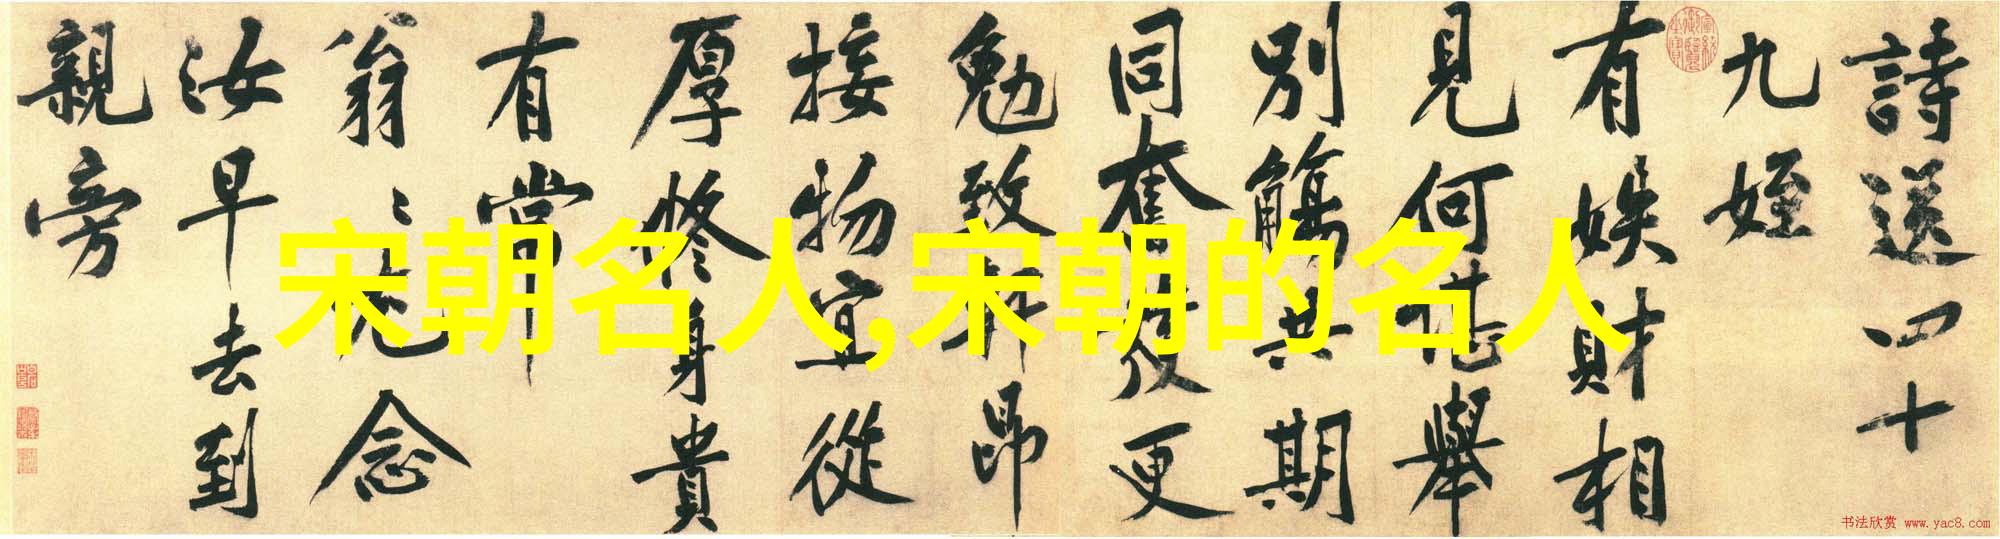 詩送四十
九姪
有娱財相
見何堪舉
別觴共期
同奮發更
勉致軒昂
接物宜從
厚修身貴
有常
翁〻尤念
汝早去到
親旁
宋朝名人,宋朝的名人
书法欣赏 www.yac8.com